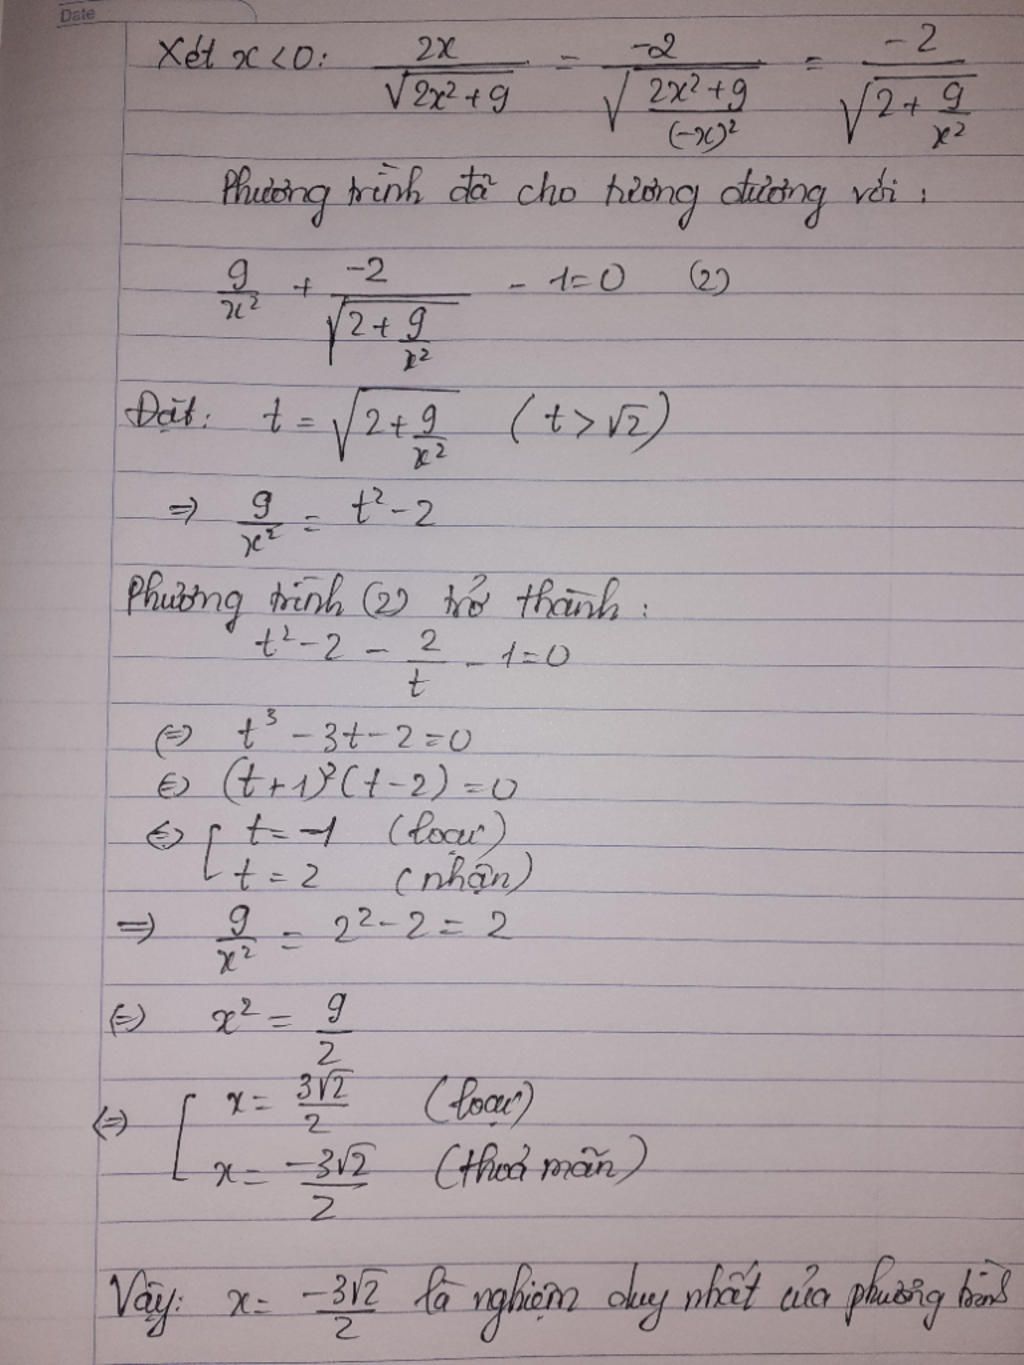 Date
Xét x < 0: 2x/√(2x² + 9) = -2/√((2x² + 9)/(-x)²) = -2/√(2 + 9/x²)
Phương trình đã cho tương đương với:
9/x² + -2/√(2 + 9/x²) - 1 = 0 (2)
Đặt: t = √(2 + 9/x²) (t > √2)
⇒ 9/x² = t² - 2
Phương trình (2) trở thành:
t² - 2 - 2/t - 1 = 0
⇔ t³ - 3t - 2 = 0
⇔ (t + 1)²(t - 2) = 0
⇔ [ t = -1 (loại)
t = 2 (nhận)
⇒ 9/x² = 2² - 2 = 2
⇔ x² = 9/2
⇔ [ x = 3√2/2 (loại)
x = -3√2/2 (thoả mãn)
Vậy: x = -3√2/2 là nghiệm duy nhất của phương trình